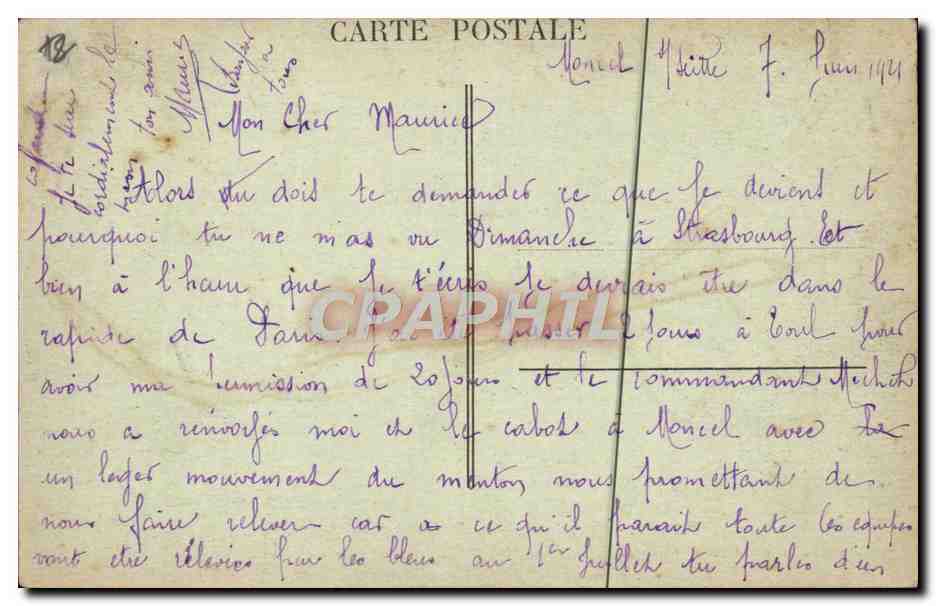 CARTE POSTALE
Moncel s/Seille 7. Juin 1921
Mon Cher Maurice
Alors tu dois te demander ce que je devient et
pourquoi tu ne mas vu Dimanche à Strasbourg. Et
bien à l'heure que je t'écris je devrais etre dans le
rapide de Paris passer 2 jours à Toul pour
avoir ma permission de 20 jours et le commandant
nous a renvoyés moi et le cabot à Moncel avec
un leger mouvement du menton nous promettant de
nous faire relever car a ce qu'il parait toute les equipes
vont etre relevées par les bleus au 1er Juillet tu parles d'un
je te serre
cordialement la
main
ton ami
Maurice
a
tous
18
CPAPHIL